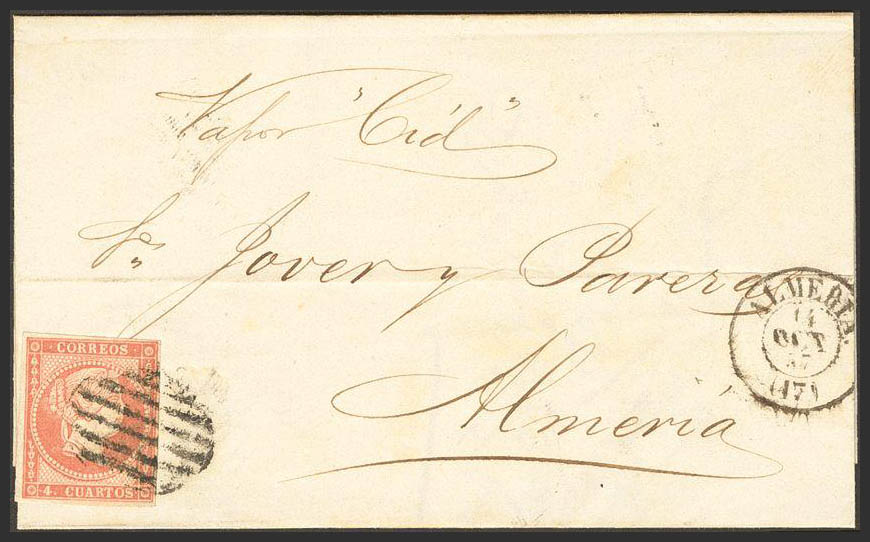 Vapor "Cid"
Sres Jover y Parera
Almeriá
CORREOS
4. CUARTOS
ALMERIA.
14
OCT
(17)